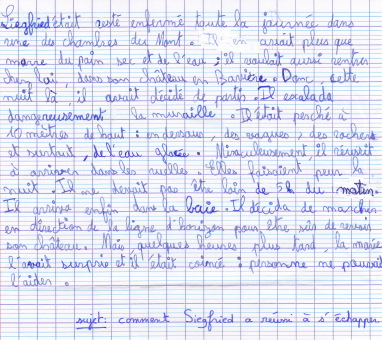 Siegfried était resté enfermé toute la journée dans
une des chambres du Mont. Il en avait plus que
marre du pain sec et de l'eau ; il voulait aussi rentrer
chez lui, dans son château en Bavière. Donc, cette
nuit là, il avait décidé de partir. Il escalada
dangereusement la muraille. Il était perché à
10 mètres de haut : en dessous, des vagues, des rochers
et surtout, de l'eau glacée. Miraculeusement, il réussit
à arriver dans les ruelles. Elles faisaient peur la
nuit. Il ne devait pas être loin de 5h du matin.
Il arriva enfin dans la baie. Il décida de marcher
en direction de la ligne d'horizon pour être sûr de revoir
son château. Mais quelques heures plus tard, la marée
l'avait surprise et il était coincé : personne ne pouvait
l'aider.
sujet : comment Siegfried a réussi à s'échapper